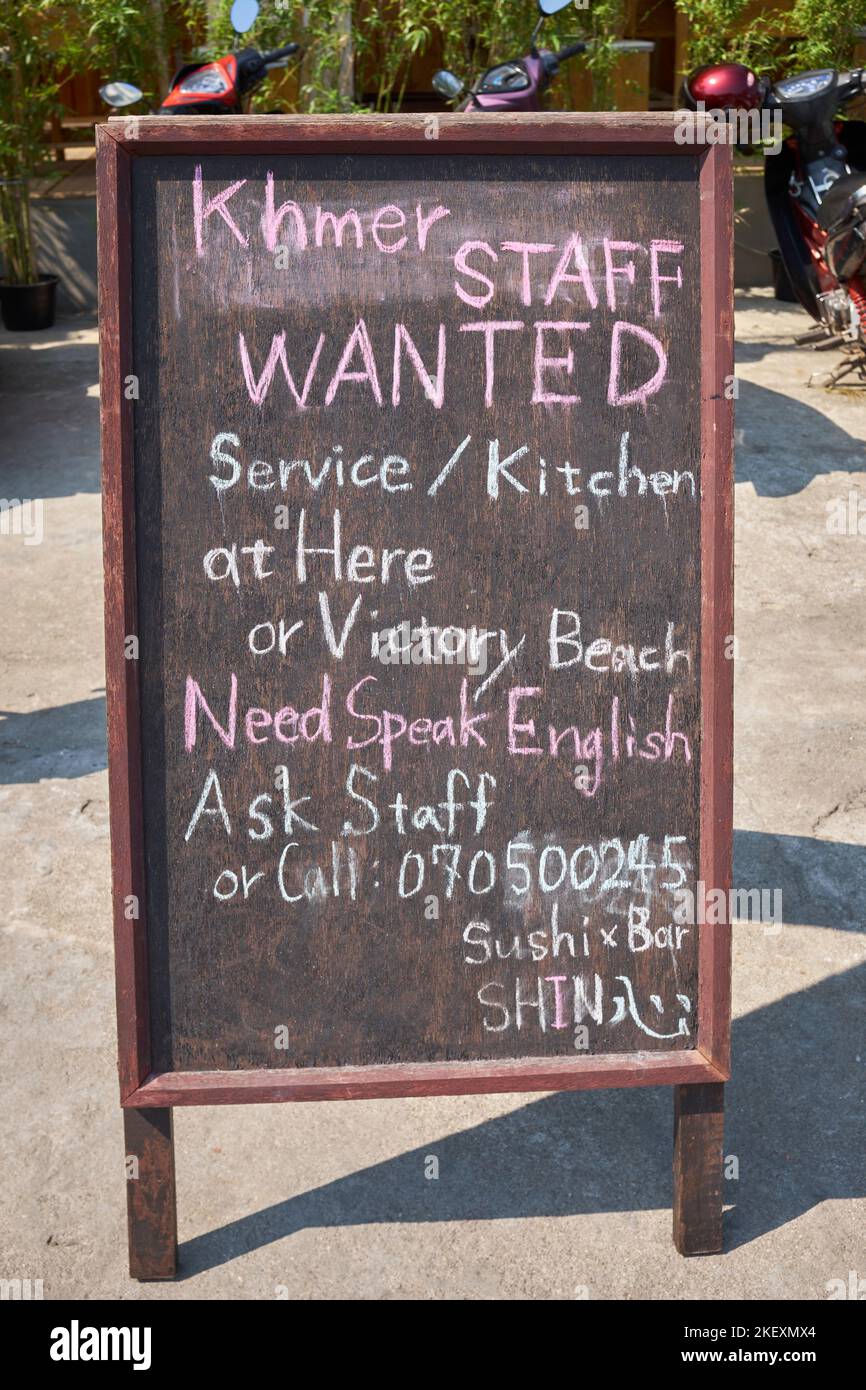 Khmer
STAFF
WANTED
Service / Kitchen
at Here
or Victory Beach
Need Speak English
Ask Staff
or Call : 070500245
Sushi × Bar
SHIN 心
alamy
Image ID: 2KEXMX4
www.alamy.com